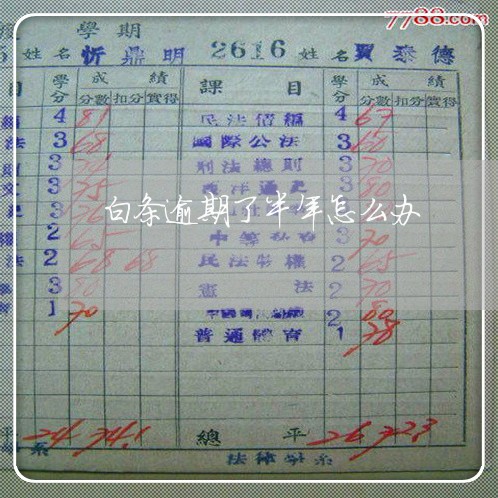 7788.com
學期
5 姓名 忻鼎明 2616 姓名 賈泰德
目 學分 成績 課目 學分 成績
分數 扣分 實得 分數 扣分 實得
4 81 民法債編 4 67
法 3 68 國際公法 3 60
3 刑法總則 3 70
文 3 75 西洋通史 3 80
3 76
白条逾期了半年怎么办
2 65 3 70
法 2 68 68 民法物權 2 65
3 80 憲法 2 70
1 70 2 80
普通體育 1 78
平 24 74.1 總平 26 72.3
系 法律學系